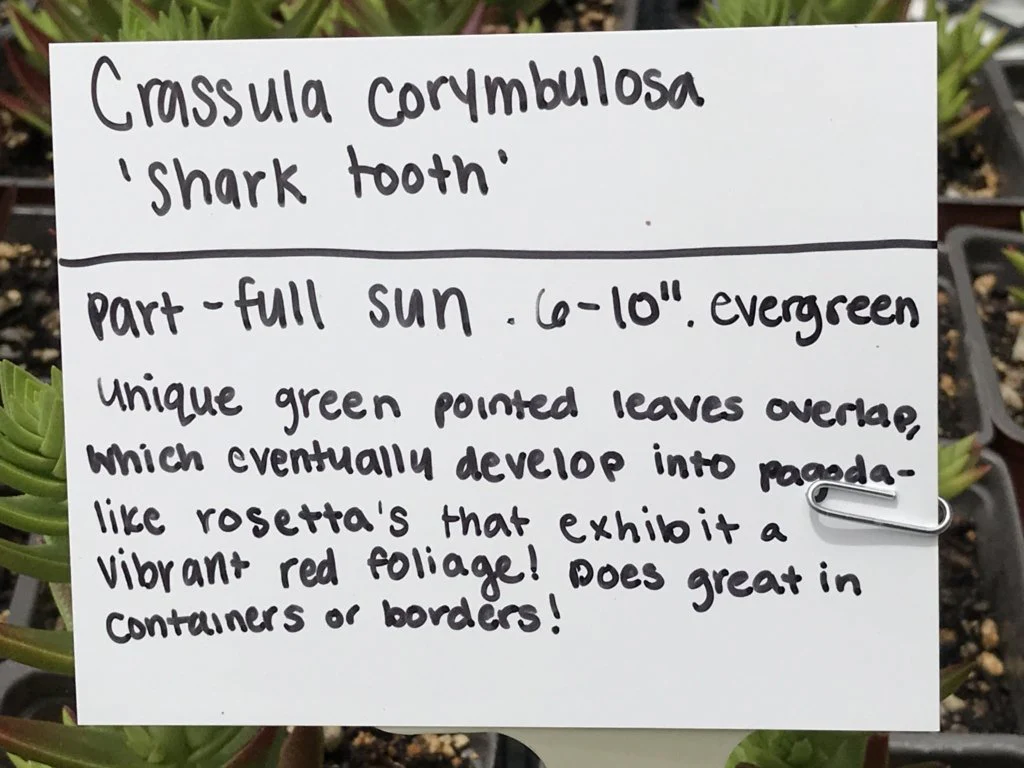 Crassula corymbulosa
'Shark tooth'
part - full sun . 6-10". evergreen
unique green pointed leaves overlap,
which eventually develop into pagoda-
like rosetta's that exhibit a
vibrant red foliage! Does great in
containers or borders!